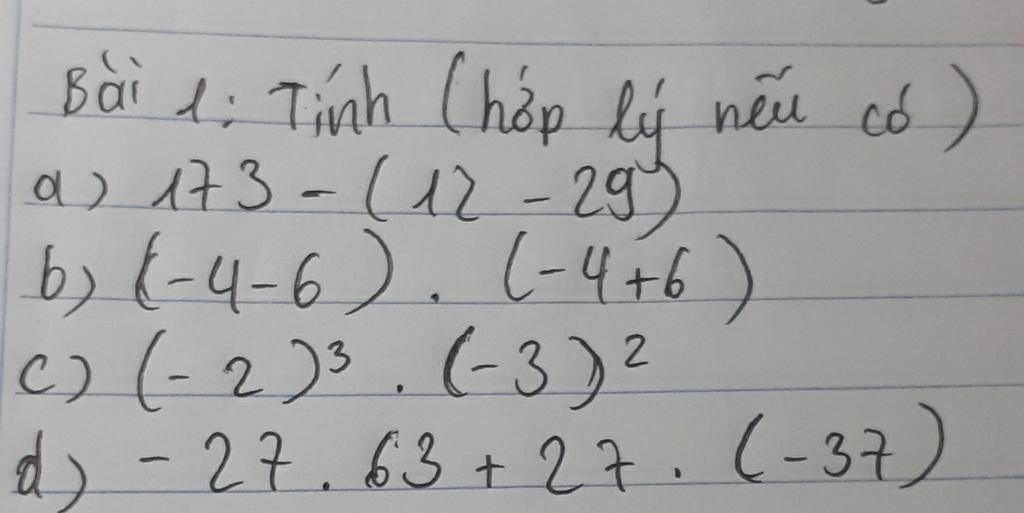 Bài 1: Tính (hợp lý nếu có)
a) 173 - (12 - 29)
b) (-4-6) . (-4+6)
c) (-2)³ . (-3)²
d) -27 . 63 + 27 . (-37)